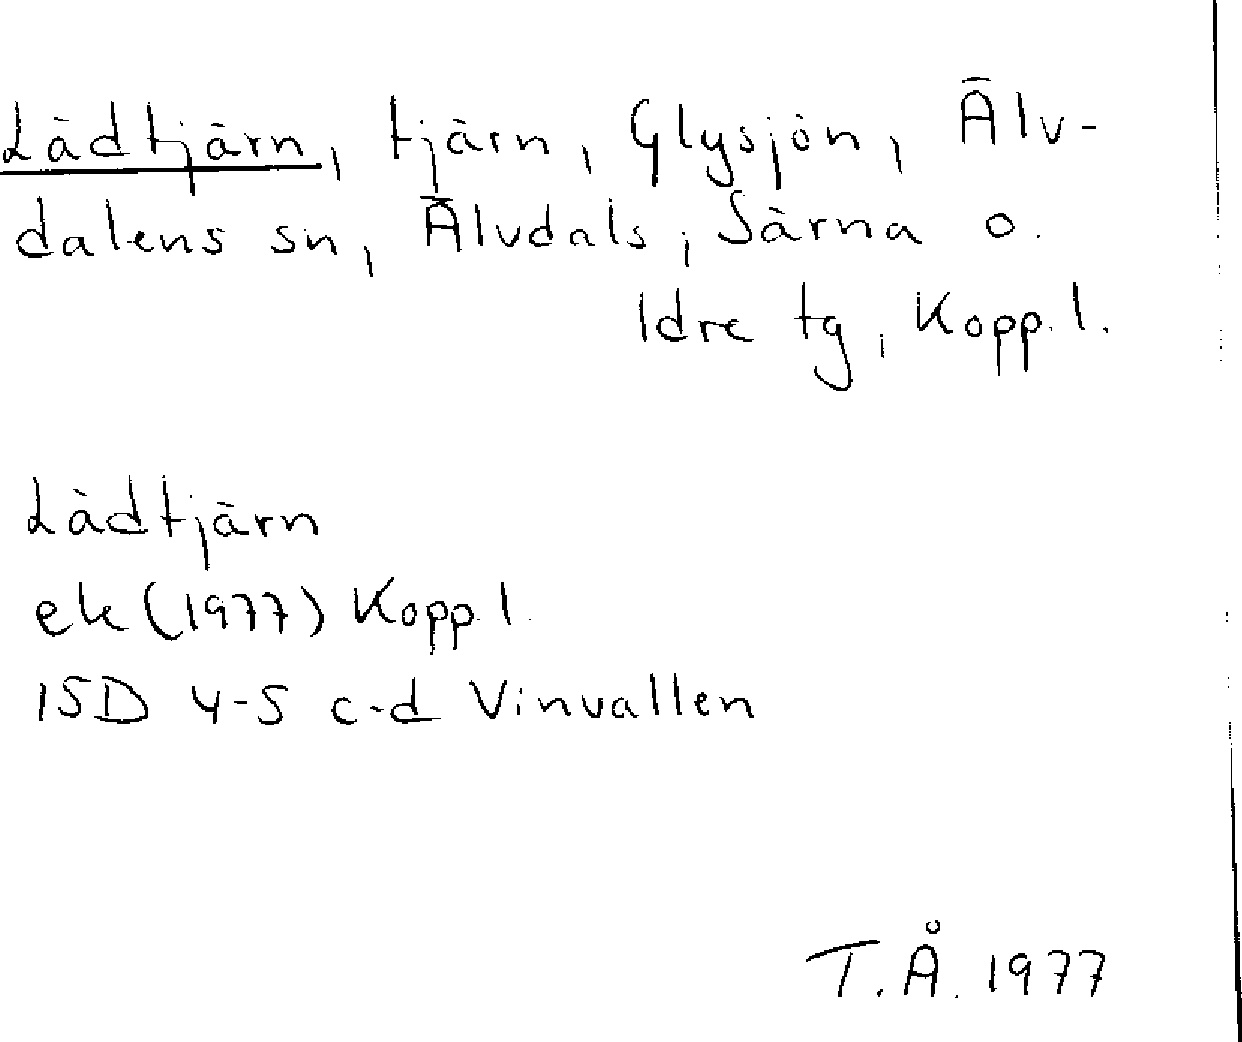 Lädtjärn, tjärn, Glysjön, Älv-
dalens sn, Älvdals, Särna o.
Idre tg, Kopp. l.
Lädtjärn
ek (1977) Kopp. l.
15D 4-5 c-d Vinvallen
T.Å. 1977